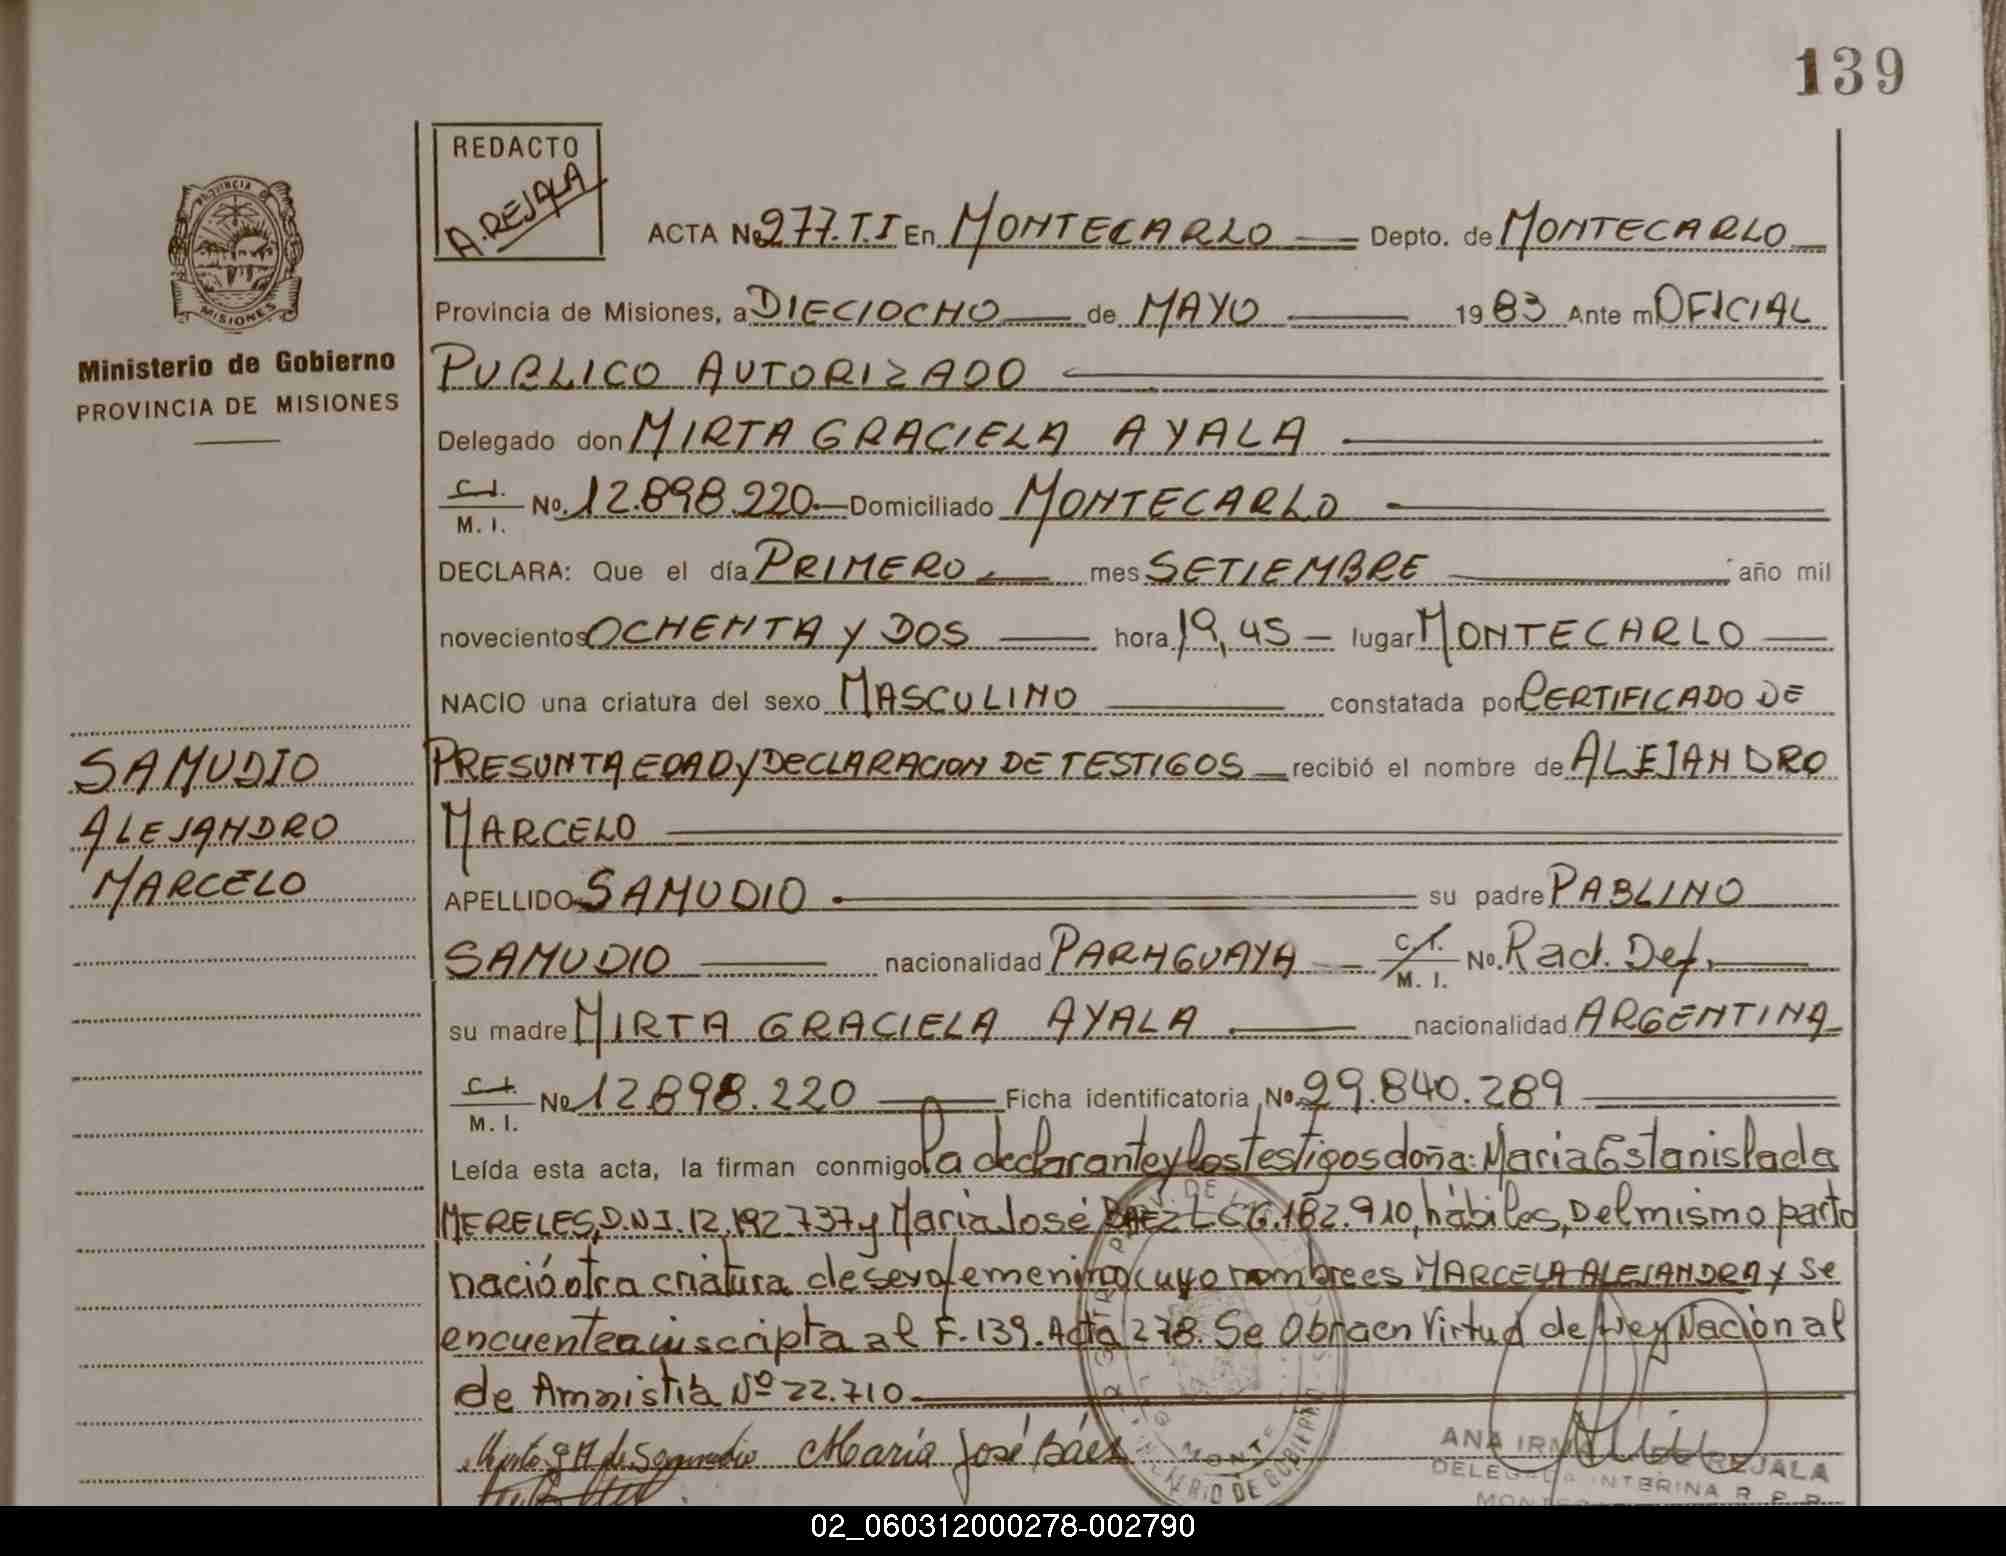 139
REDACTO
A. REJALA
ACTA No 277. T. I En MONTECARLO Depto. de MONTECARLO
PROVINCIA DE
MISIONES
Provincia de Misiones, a DIECIOCHO de MAYO 1983 Ante mi OFICIAL
Ministerio de Gobierno
PROVINCIA DE MISIONES
PUBLICO AUTORIZADO
Delegado don MIRTA GRACIELA AYALA
C.I.
M. I. No. 12.898.220 Domiciliado MONTECARLO
DECLARA: Que el día PRIMERO mes SETIEMBRE año mil
novecientos OCHENTA Y DOS hora 19,45 lugar MONTECARLO
NACIO una criatura del sexo MASCULINO constatada por CERTIFICADO DE
SAMUDIO
ALEJANDRO
MARCELO
PRESUNTA EDAD y DECLARACION DE TESTIGOS recibió el nombre de ALEJANDRO
MARCELO
APELLIDO SAMUDIO su padre PABLINO
SAMUDIO nacionalidad PARAGUAYA C.I.
M. I. No. Rad. Def.
su madre MIRTA GRACIELA AYALA nacionalidad ARGENTINA
C.I.
M. I. No 12.898.220 Ficha identificatoria No. 29.840.289
Leída esta acta, la firman conmigo La declarante y los testigos doña: Maria Estanislada
MERELES, D.N.I. 12.192.737 y Maria José BAEZ L.C. 6.182.910, hábiles, Del mismo parto
nació otra criatura de sexo femenino cuyo nombre es MARCELA ALEJANDRA y se
encuentea inscripta al F. 139. Acta 278. Se Obra en Virtud de Ley Nacional
de Amnistia Nº 22.710
Maria José Báez
ANA REJALA
DELEGADA INTERINA R. P. P.
02_060312000278-002790